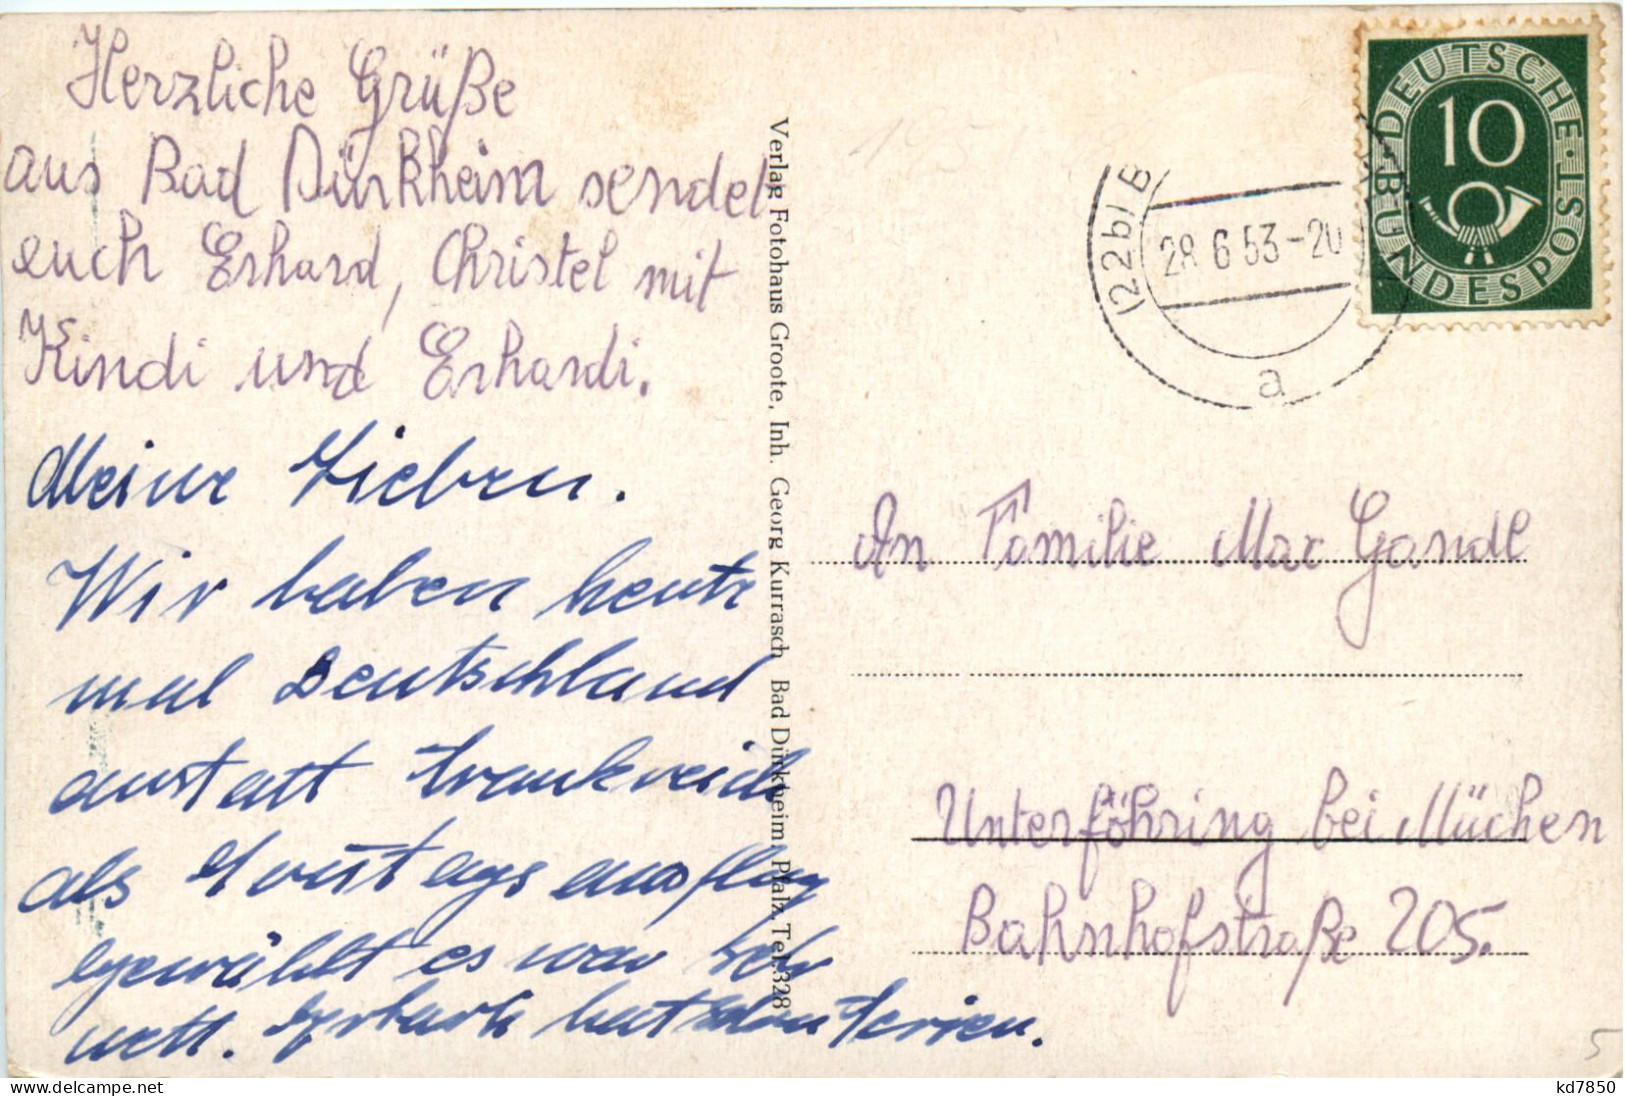 Herzliche Grüße
aus Bad Dürkheim sendet
euch Erhard, Christel mit
Kindi und Erhardi.
Meine Lieben.
Wir haben heute
mal Deutschland
anstatt Frankreich
als Sonntagsausflug
gewählt es war sehr
nett. Erhardi hat schon Ferien.
Verlag Fotohaus Groote, Inh. Georg Kurrasch Bad Dürkheim Pfalz, Tel. 328
DEUTSCHE BUNDESPOST
10
(22b) B
28.6.53-20
a
An Familie Max Gandl
Unterföhring bei Müchen
Bahnhofstraße 205.
5
kd7850